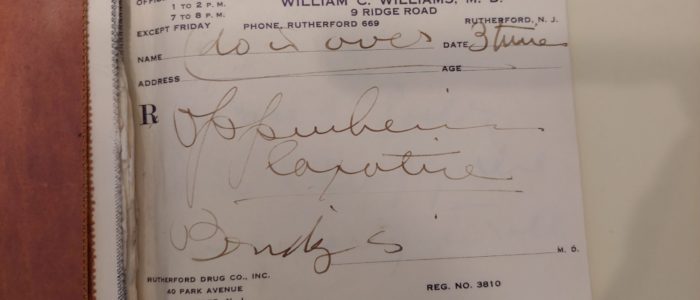 OFFI
WILLIAM C. WILLIAMS, M. D.
1 TO 2 P. M.
7 TO 8 P. M.
9 RIDGE ROAD
EXCEPT FRIDAY
PHONE, RUTHERFORD 669
RUTHERFORD, N. J.
NAME (do is over DATE 3 times
ADDRESS AGE
R
Oppenheim
laxative
M. D.
RUTHERFORD DRUG CO., INC.
40 PARK AVENUE
REG. NO. 3810